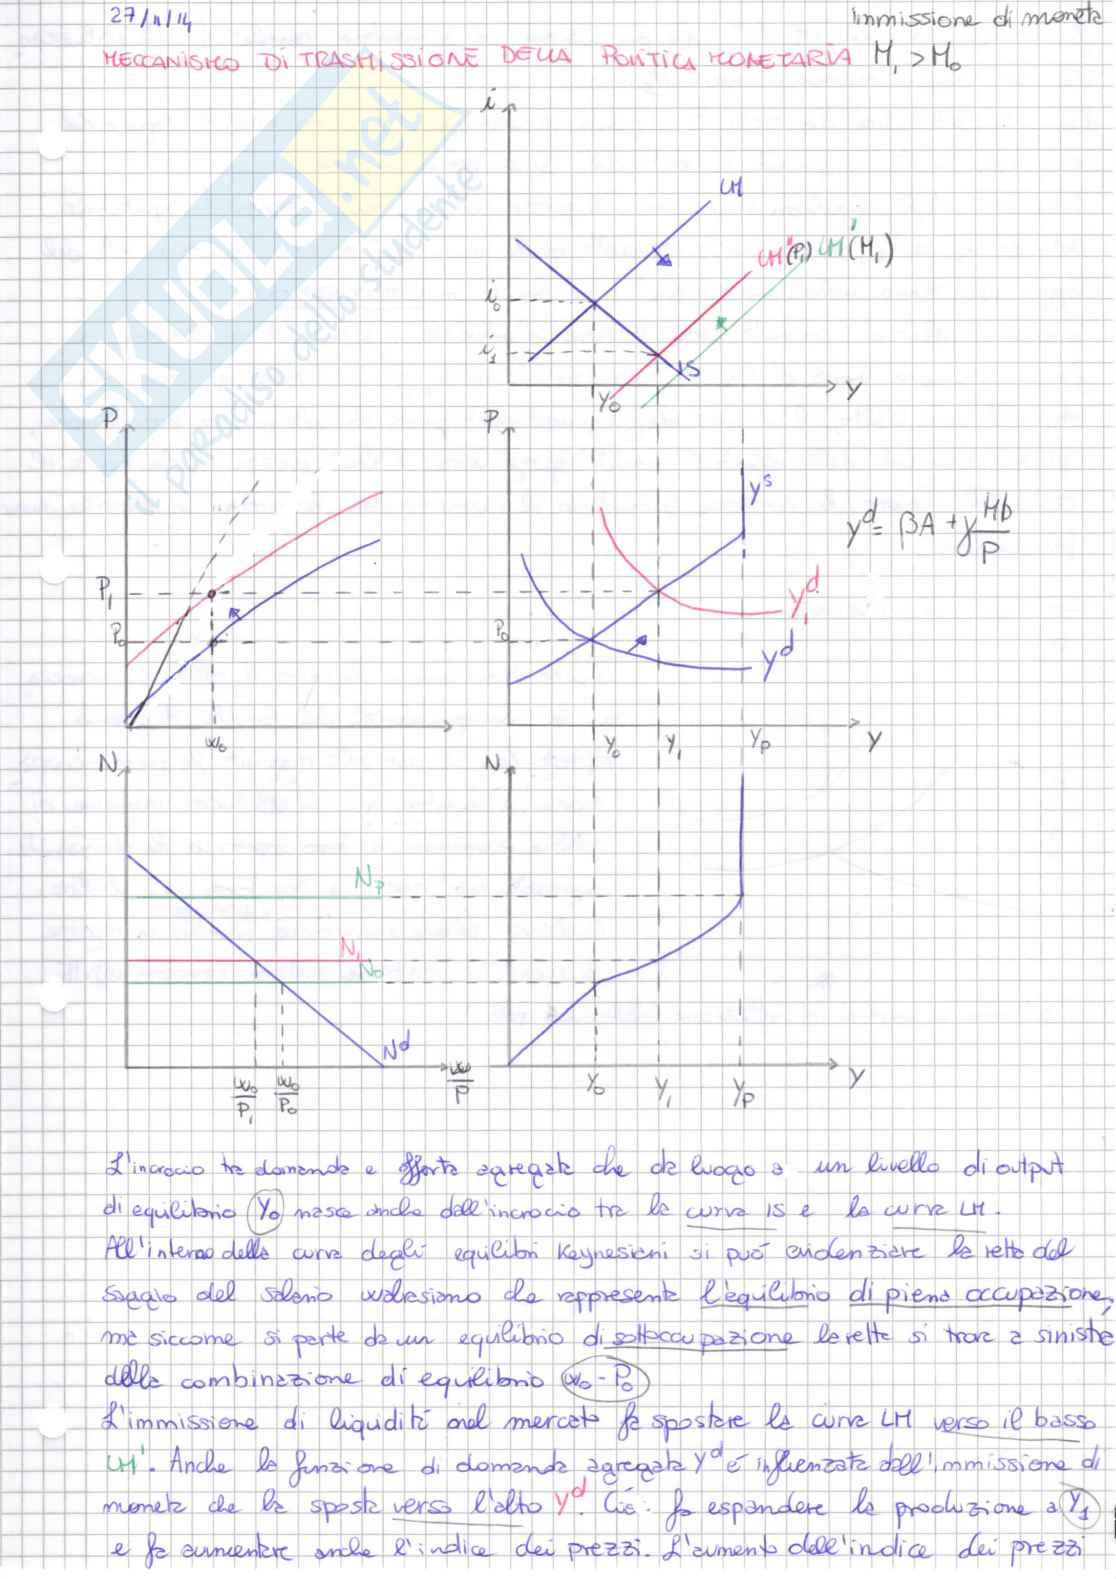 27/11/14
immissione di moneta
MECCANISMO DI TRASMISSIONE DELLA POLITICA MONETARIA M₁ > M₀
SKUOLA.net
il paradiso dello studente
i
LM
LM''(P₁) LM'(M₁)
i₀
i₁
IS
Y₀
Y
P
P
yˢ
yᵈ = βA + γ Mb/P
P₁
P₀
P₀
y₁ᵈ
yᵈ
w₀
Y₀
Y₁
Yp
Y
N
N
Np
N₁
N₀
Nᵈ
w₀/P₁
w₀/P₀
w/P
Y₀
Y₁
Yp
Y
L'incrocio tra domanda e offerta agregata che da luogo a un livello di output
di equilibrio Y₀ nasce anche dall'incrocio tra la curva IS e la curva LM.
All'interno della curva degli equilibri Keynesiani si può evidenziare la retta del
saggio del salario walrasiano che rappresenta l'equilibrio di piena occupazione,
ma siccome si parte da un equilibrio di sottoccupazione la retta si trova a sinistra
della combinazione di equilibrio w₀ - P₀
L'immissione di liquidità nel mercato fa spostare la curva LM verso il basso
LM'. Anche la funzione di domanda agregata yᵈ è influenzata dall'immissione di
moneta che la sposta verso l'alto yᵈ. Ciò fa espandere la produzione a Y₁
e fa aumentare anche l'indice dei prezzi. L'aumento dell'indice dei prezzi